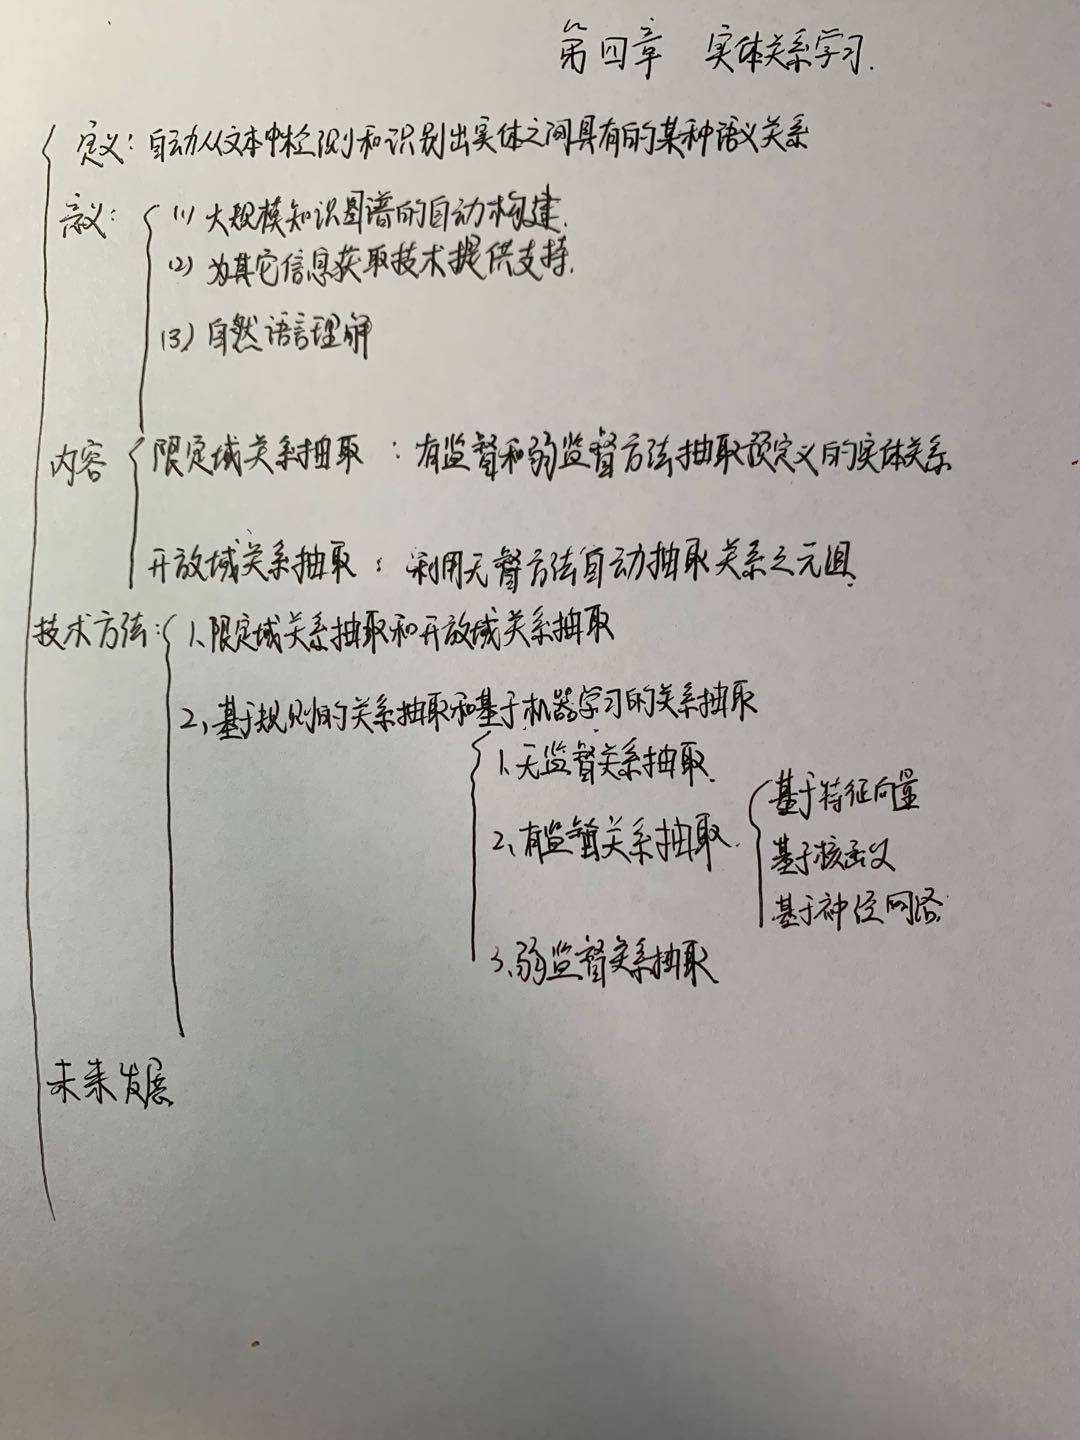 第四章 实体关系学习.
定义：自动从文本中检测和识别出实体之间具有的某种语义关系
意义：
(1) 大规模知识图谱的自动构建.
(2) 为其它信息获取技术提供支持.
(3) 自然语言理解
内容
限定域关系抽取：有监督和弱监督方法抽取预定义的实体关系
开放域关系抽取：利用无督方法自动抽取关系之元组.
技术方法：
1、限定域关系抽取和开放域关系抽取
2、基于规则的关系抽取和基于机器学习的关系抽取
1、无监督关系抽取.
基于特征向量
2、有监督关系抽取.
基于核函义
基于神经网络.
3、弱监督关系抽取
未来发展